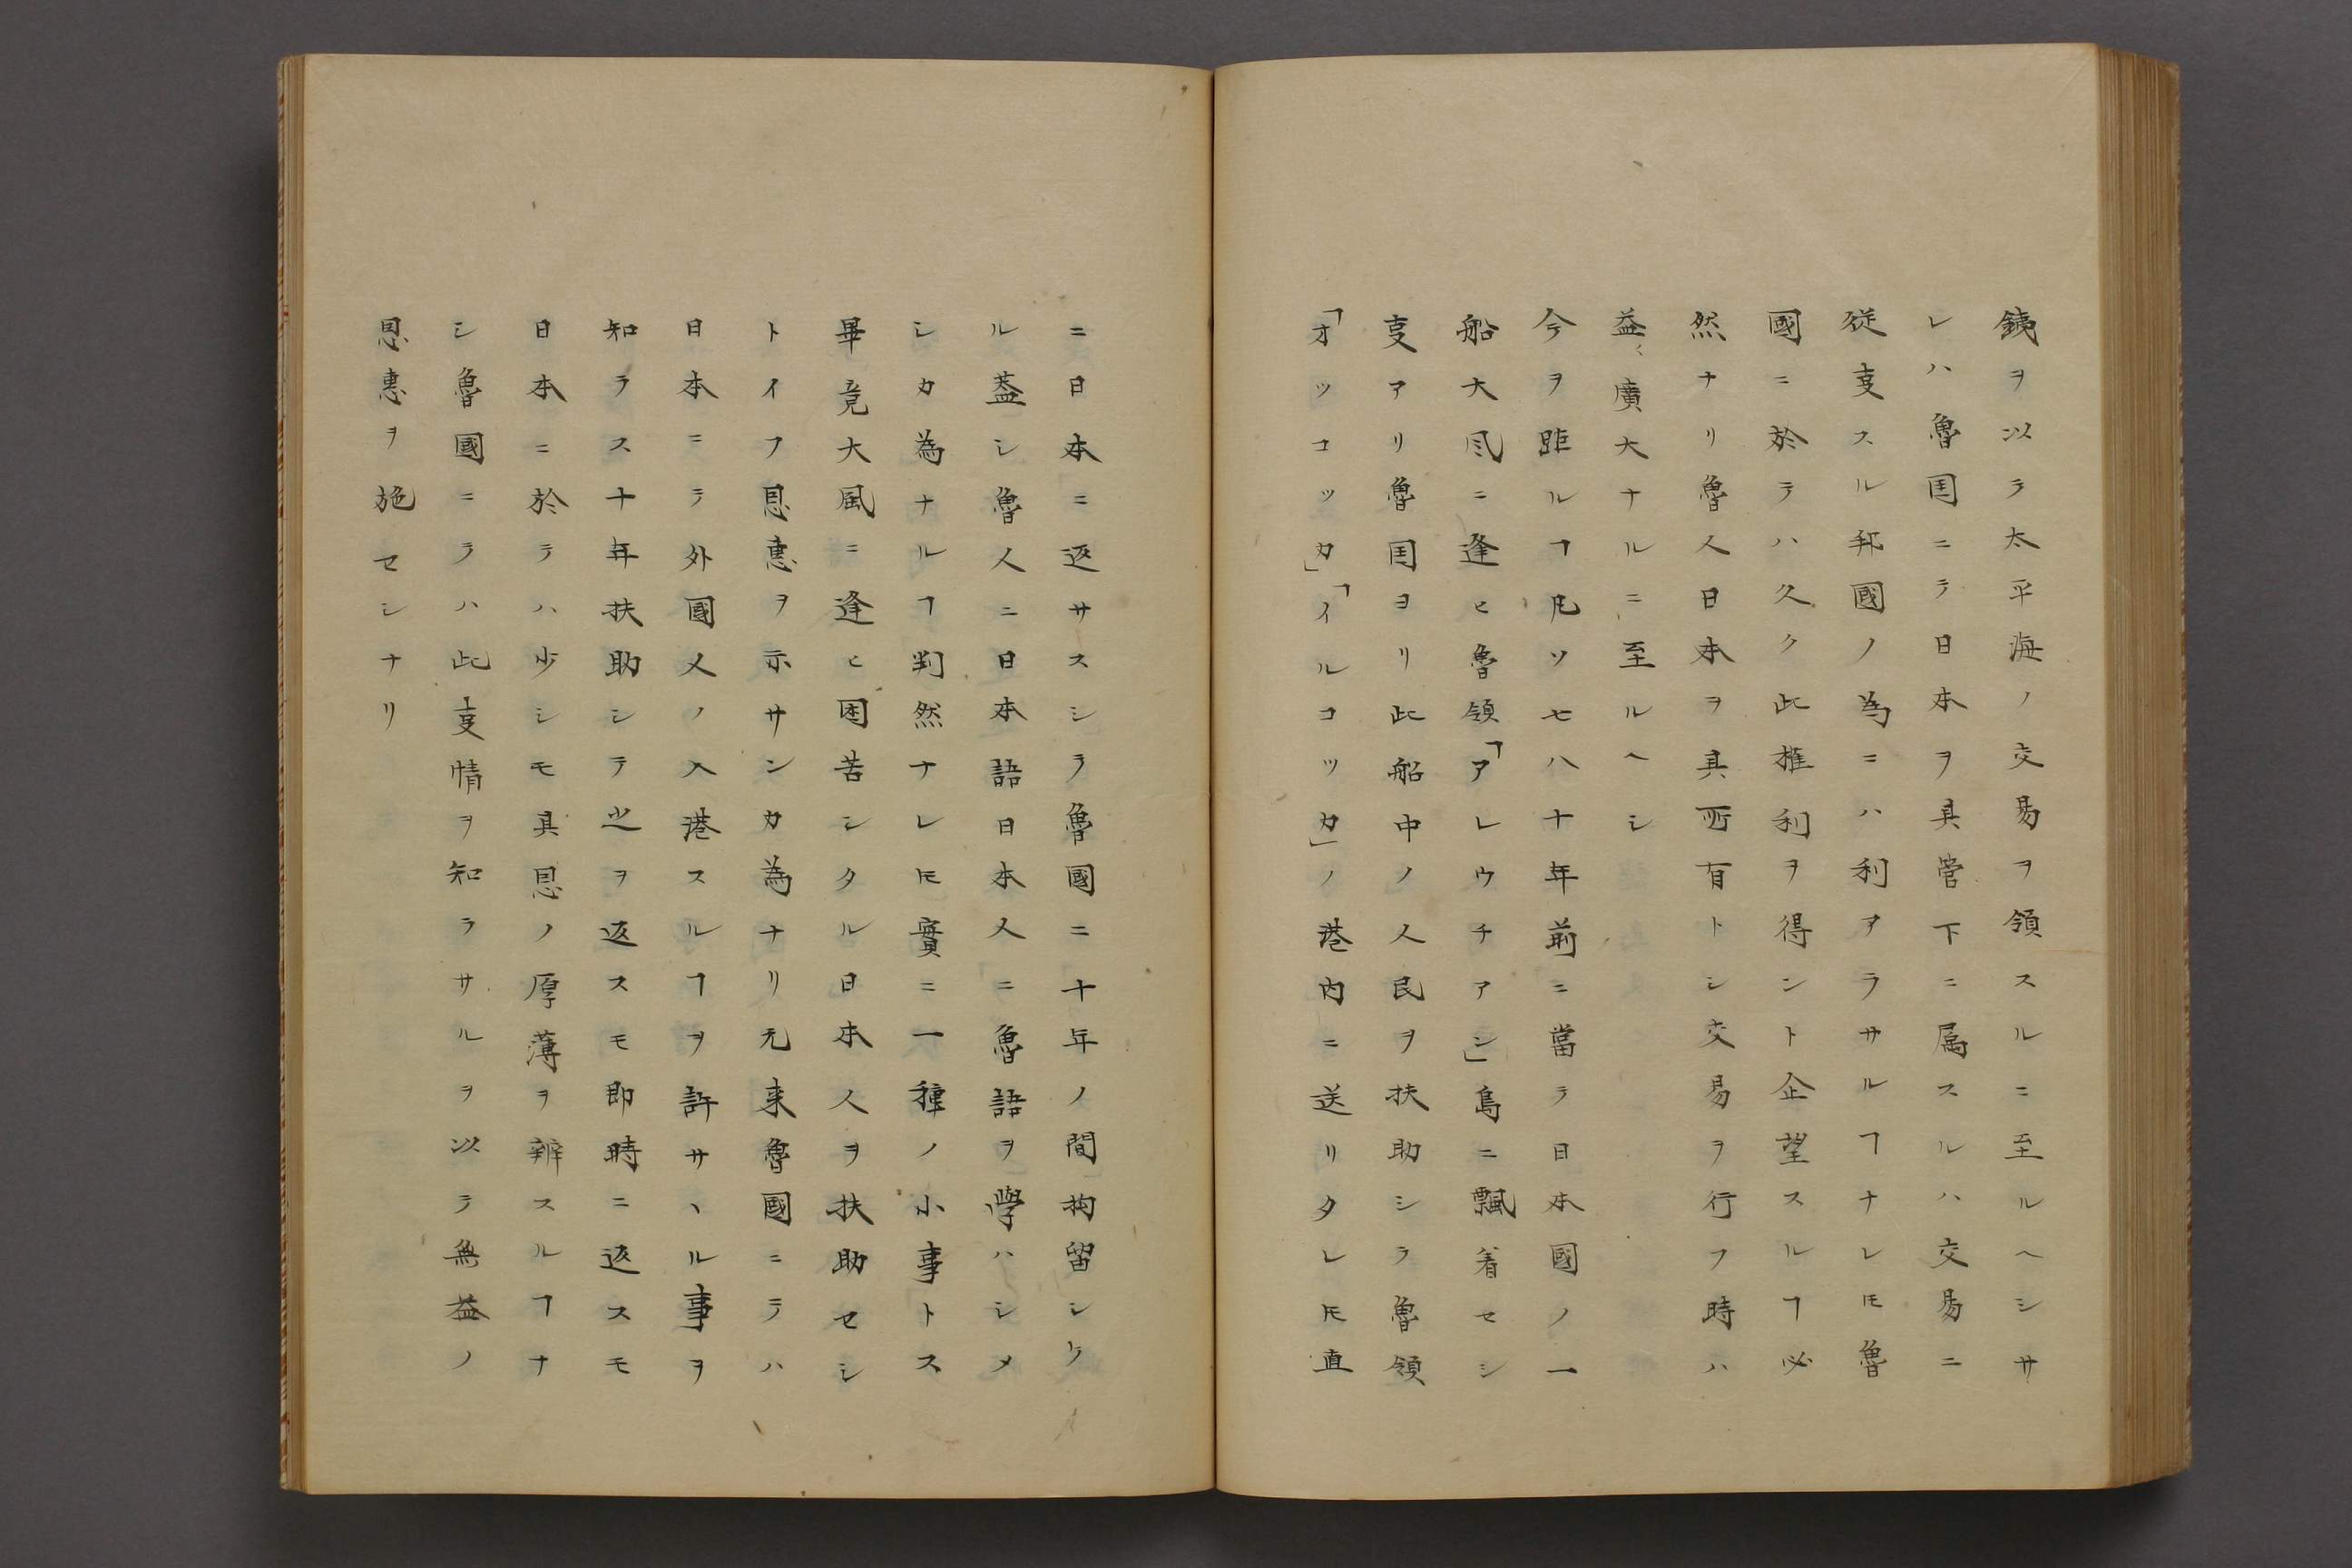 銕ヲ以テ太平海ノ交易ヲ領スルニ至ルヘシサ
レハ魯国ニテ日本ヲ其管下ニ属スルハ交易ニ
従叓スル邦國ノ為ニハ利アラサルヿナレ𪜈魯
國ニ於テハ久ク此権利ヲ得ント企望スルヿ必
然ナリ魯人日本ヲ其所有トシ交易ヲ行フ時ハ
益〻廣大ナルニ至ルヘシ
今ヲ距ルヿ凡ソ七八十年前ニ當テ日本國ノ一
船大風ニ逢ヒ魯領「アレウチアン」島ニ飄着セシ
叓アリ魯国ヨリ此船中ノ人民ヲ扶助シテ魯領
「オッコツカ」「イルコツカ」ノ港内ニ送リタレ𪜈直
ニ日本ニ返サスシテ魯國ニ十年ノ間拘留シケ
ル蓋シ魯人ニ日本語日本人ニ魯語ヲ學ハシメ
シカ為ナルヿ判然ナレ𪜈實ニ一種ノ小事トス
畢竟大風ニ逢ヒ困苦シタル日本人ヲ扶助セシ
トイフ恩惠ヲ示サンカ為ナリ元来魯國ニテハ
日本ニテ外國人ノ入港スルヿヲ許サヽル事ヲ
知ラス十年扶助シテ之ヲ返スモ即時ニ返スモ
日本ニ於テハ少シモ其恩ノ厚薄ヲ辨スルヿナ
シ魯國ニテハ此叓情ヲ知ラサルヲ以テ無益ノ
恩惠ヲ施セシナリ